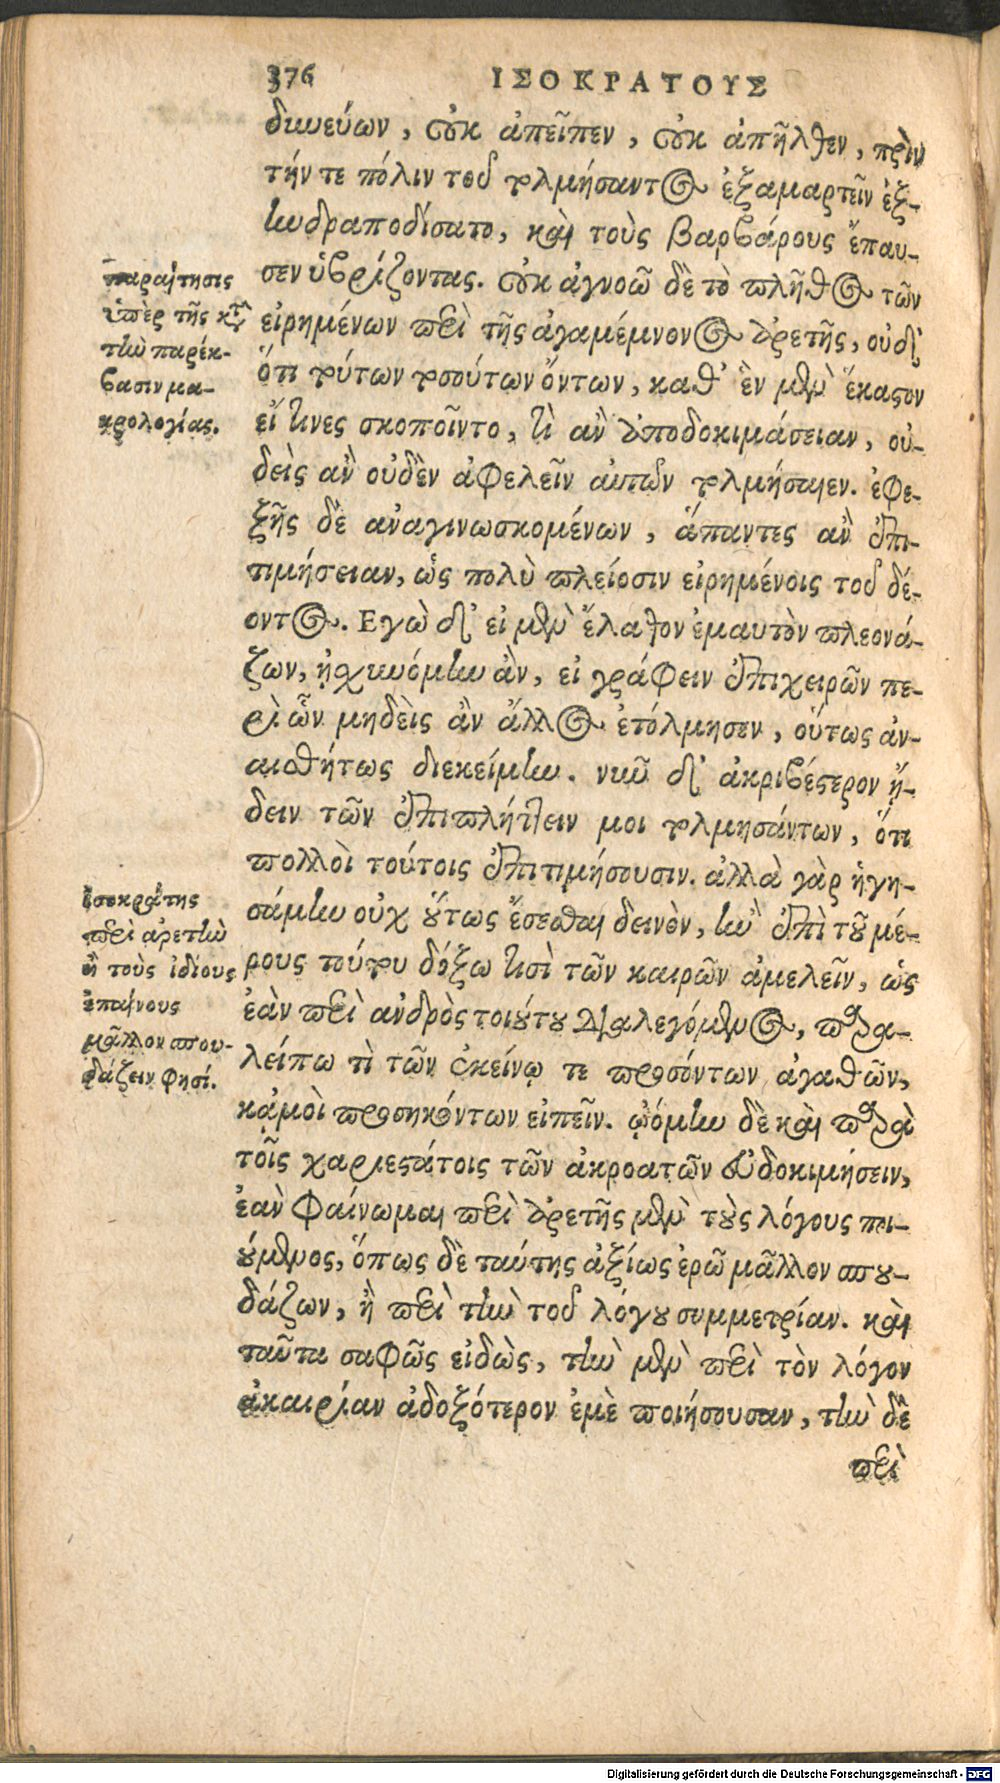 376 ΙΣΟΚΡΑΤΟΥΣ
δυνεύων, οὐκ ἀπεῖπεν, οὐκ ἀπῆλθεν, πρὶν
τήν τε πόλιν τοῦ τολμήσαντος ἐξαμαρτεῖν ἐξ-
ηνδραποδίσατο, καὶ τοὺς βαρβάρους ἔπαυ-
σεν ὑβρίζοντας. οὐκ ἀγνοῶ δὲ τὸ πλῆθος τῶν
εἰρημένων περὶ τῆς ἀγαμέμνονος ἀρετῆς, οὐδ'
ὅτι τούτων τοσούτων ὄντων, καθ' ἓν μὲν ἕκαστον
εἴ τινες σκοποῖντο, τί ἂν ἀποδοκιμάσειαν, οὐ-
δεὶς ἂν οὐδὲν ἀφελεῖν αὐτῶν τολμήσαιεν. ἐφε-
ξῆς δὲ ἀναγινωσκομένων, ἅπαντες ἂν ἐπι-
τιμήσειαν, ὡς πολὺ πλείοσιν εἰρημένοις τοῦ δέ-
οντος. Εγὼ δ' εἰ μὲν ἔλαθον ἐμαυτὸν πλεονά-
ζων, ᾐσχυνόμην ἂν, εἰ γράφειν ἐπιχειρῶν πε-
ρὶ ὧν μηδεὶς ἂν ἄλλος ἐτόλμησεν, οὕτως ἀν-
αισθήτως διεκείμην. νῦν δ' ἀκριβέστερον ᾔ-
δειν τῶν ἐπιπλήττειν μοι τολμησάντων, ὅτι
πολλοὶ τούτοις ἐπιτιμήσουσιν. ἀλλὰ γὰρ ἡγη-
σάμην οὐχ οὕτως ἔσεσθαι δεινὸν, ἢν ἐπὶ τοῦ μέ-
ρους τούτου δόξω τισὶ τῶν καιρῶν ἀμελεῖν, ὡς
ἐὰν περὶ ἀνδρὸς τοιούτου διαλεγόμενος, παρα-
λείπω τὶ τῶν ἐκείνῳ τε προσόντων ἀγαθῶν,
κᾀμοὶ προσηκόντων εἰπεῖν. ᾠόμην δὲ καὶ παρὰ
τοῖς χαριεστάτοις τῶν ἀκροατῶν εὐδοκιμήσειν,
ἐὰν φαίνωμαι περὶ ἀρετῆς μὲν τοὺς λόγους ποι-
ούμενος, ὅπως δὲ ταύτης ἀξίως ἐρῶ μᾶλλον σπου-
δάζων, ἢ περὶ τὴν τοῦ λόγου συμμετρίαν. καὶ
ταῦτα σαφῶς εἰδὼς, τὴν μὲν περὶ τὸν λόγον
ἀκαιρίαν ἀδοξότερον ἐμὲ ποιήσουσαν, τὴν δὲ
περὶ
παραίτησις
ὑπὲρ τῆς κατὰ
τὴν παρέκ-
βασιν μα-
κρολογίας.
ἰσοκράτης
περὶ ἀρετὴν
ἢ τοὺς ἰδίους
ἐπαίνους
μᾶλλον σπου-
δάζειν φησί.
Digitalisierung gefördert durch die Deutsche Forschungsgemeinschaft - DFG